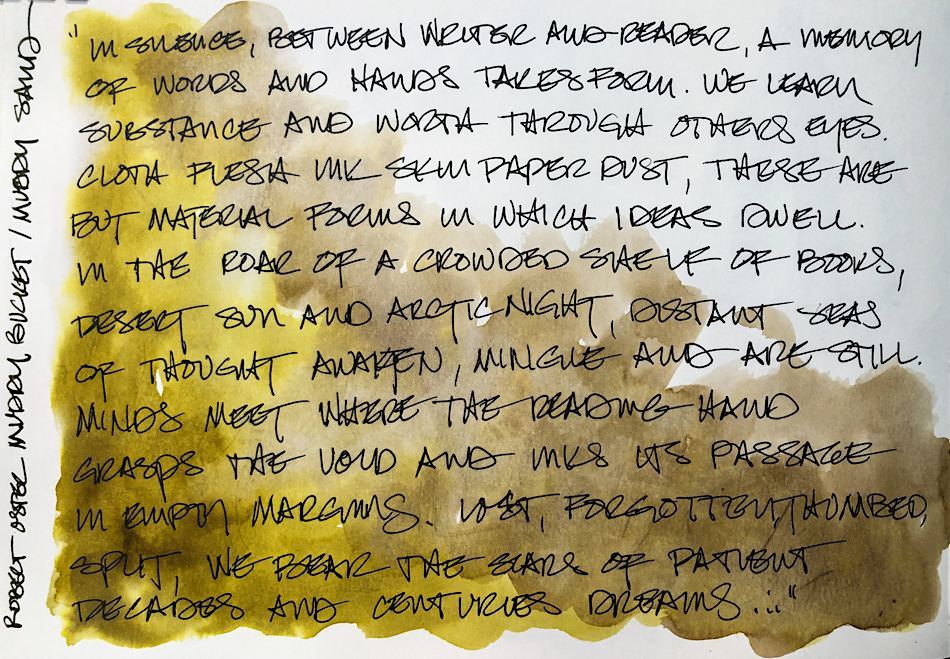 "IN SILENCE, BETWEEN WRITER AND READER, A MEMORY
OF WORDS AND HANDS TAKES FORM. WE LEARN
SUBSTANCE AND WORTH THROUGH OTHERS EYES.
CLOTH FLESH INK SKIN PAPER DUST, THESE ARE
BUT MATERIAL FORMS IN WHICH IDEAS DWELL.
IN THE ROAR OF A CROWDED SHELF OF BOOKS,
DESERT SUN AND ARCTIC NIGHT, DISTANT SEAS
OF THOUGHT AWAKEN, MINGLE AND ARE STILL.
MINDS MEET WHERE THE READING HAND
GRASPS THE VOID AND INKS ITS PASSAGE
IN EMPTY MARGINS. LOST, FORGOTTEN, THUMBED,
SPLIT, WE BEAR THE SCARS OF PATIENT
DECADES AND CENTURIES DREAMS..."
ROBERT OSTER MUDDY BUCKET / MUDDY SAND